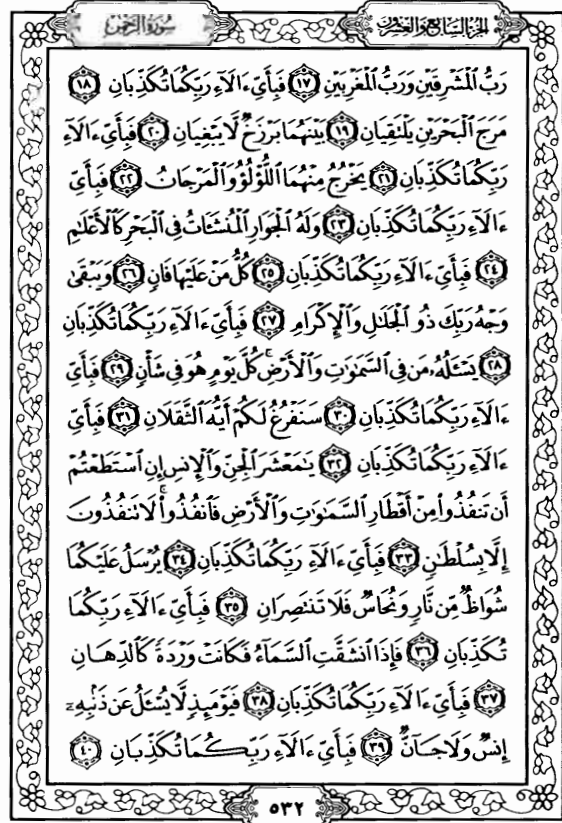 الجزء السابع والعشرون سورة الرحمن
رَبُّ ٱلْمَشْرِقَيْنِ وَرَبُّ ٱلْمَغْرِبَيْنِ ١٧ فَبِأَىِّ ءَالَآءِ رَبِّكُمَا تُكَذِّبَانِ ١٨
مَرَجَ ٱلْبَحْرَيْنِ يَلْتَقِيَانِ ١٩ بَيْنَهُمَا بَرْزَخٌ لَّا يَبْغِيَانِ ٢٠ فَبِأَىِّ ءَالَآءِ
رَبِّكُمَا تُكَذِّبَانِ ٢١ يَخْرُجُ مِنْهُمَا ٱللُّؤْلُؤُ وَٱلْمَرْجَانُ ٢٢ فَبِأَىِّ
ءَالَآءِ رَبِّكُمَا تُكَذِّبَانِ ٢٣ وَلَهُ ٱلْجَوَارِ ٱلْمُنشَـَٔاتُ فِى ٱلْبَحْرِ كَٱلْأَعْلَـٰمِ
٢٤ فَبِأَىِّ ءَالَآءِ رَبِّكُمَا تُكَذِّبَانِ ٢٥ كُلُّ مَنْ عَلَيْهَا فَانٍ ٢٦ وَيَبْقَىٰ
وَجْهُ رَبِّكَ ذُو ٱلْجَلَـٰلِ وَٱلْإِكْرَامِ ٢٧ فَبِأَىِّ ءَالَآءِ رَبِّكُمَا تُكَذِّبَانِ
٢٨ يَسْـَٔلُهُۥ مَن فِى ٱلسَّمَـٰوَٰتِ وَٱلْأَرْضِ ۚ كُلَّ يَوْمٍ هُوَ فِى شَأْنٍ ٢٩ فَبِأَىِّ
ءَالَآءِ رَبِّكُمَا تُكَذِّبَانِ ٣٠ سَنَفْرُغُ لَكُمْ أَيُّهَ ٱلثَّقَلَانِ ٣١ فَبِأَىِّ
ءَالَآءِ رَبِّكُمَا تُكَذِّبَانِ ٣٢ يَـٰمَعْشَرَ ٱلْجِنِّ وَٱلْإِنسِ إِنِ ٱسْتَطَعْتُمْ
أَن تَنفُذُوا۟ مِنْ أَقْطَارِ ٱلسَّمَـٰوَٰتِ وَٱلْأَرْضِ فَٱنفُذُوا۟ ۚ لَا تَنفُذُونَ
إِلَّا بِسُلْطَـٰنٍ ٣٣ فَبِأَىِّ ءَالَآءِ رَبِّكُمَا تُكَذِّبَانِ ٣٤ يُرْسَلُ عَلَيْكُمَا
شُوَاظٌ مِّن نَّارٍ وَنُحَاسٌ فَلَا تَنتَصِرَانِ ٣٥ فَبِأَىِّ ءَالَآءِ رَبِّكُمَا
تُكَذِّبَانِ ٣٦ فَإِذَا ٱنشَقَّتِ ٱلسَّمَآءُ فَكَانَتْ وَرْدَةً كَٱلدِّهَانِ
٣٧ فَبِأَىِّ ءَالَآءِ رَبِّكُمَا تُكَذِّبَانِ ٣٨ فَيَوْمَئِذٍ لَّا يُسْـَٔلُ عَن ذَنۢبِهِۦٓ
إِنسٌ وَلَا جَآنٌّ ٣٩ فَبِأَىِّ ءَالَآءِ رَبِّكُمَا تُكَذِّبَانِ ٤٠
٥٣٢